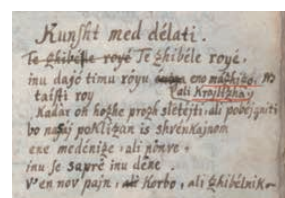 Kunsht med délati.
Te zhibéle royé Te zhibéle royé,
inu dajó timu róyu eno mazhizo, No
taisti roy ali Krajlizhay
Kadàr on hozhe prozh sletéjti, ali pobejgniti
bo nasaj poklizan is shvénkajnom
ene medénize, ali pónve,
inu se sapré inu déne
V'en nov pajn, ali Korbo, ali zhibélnik